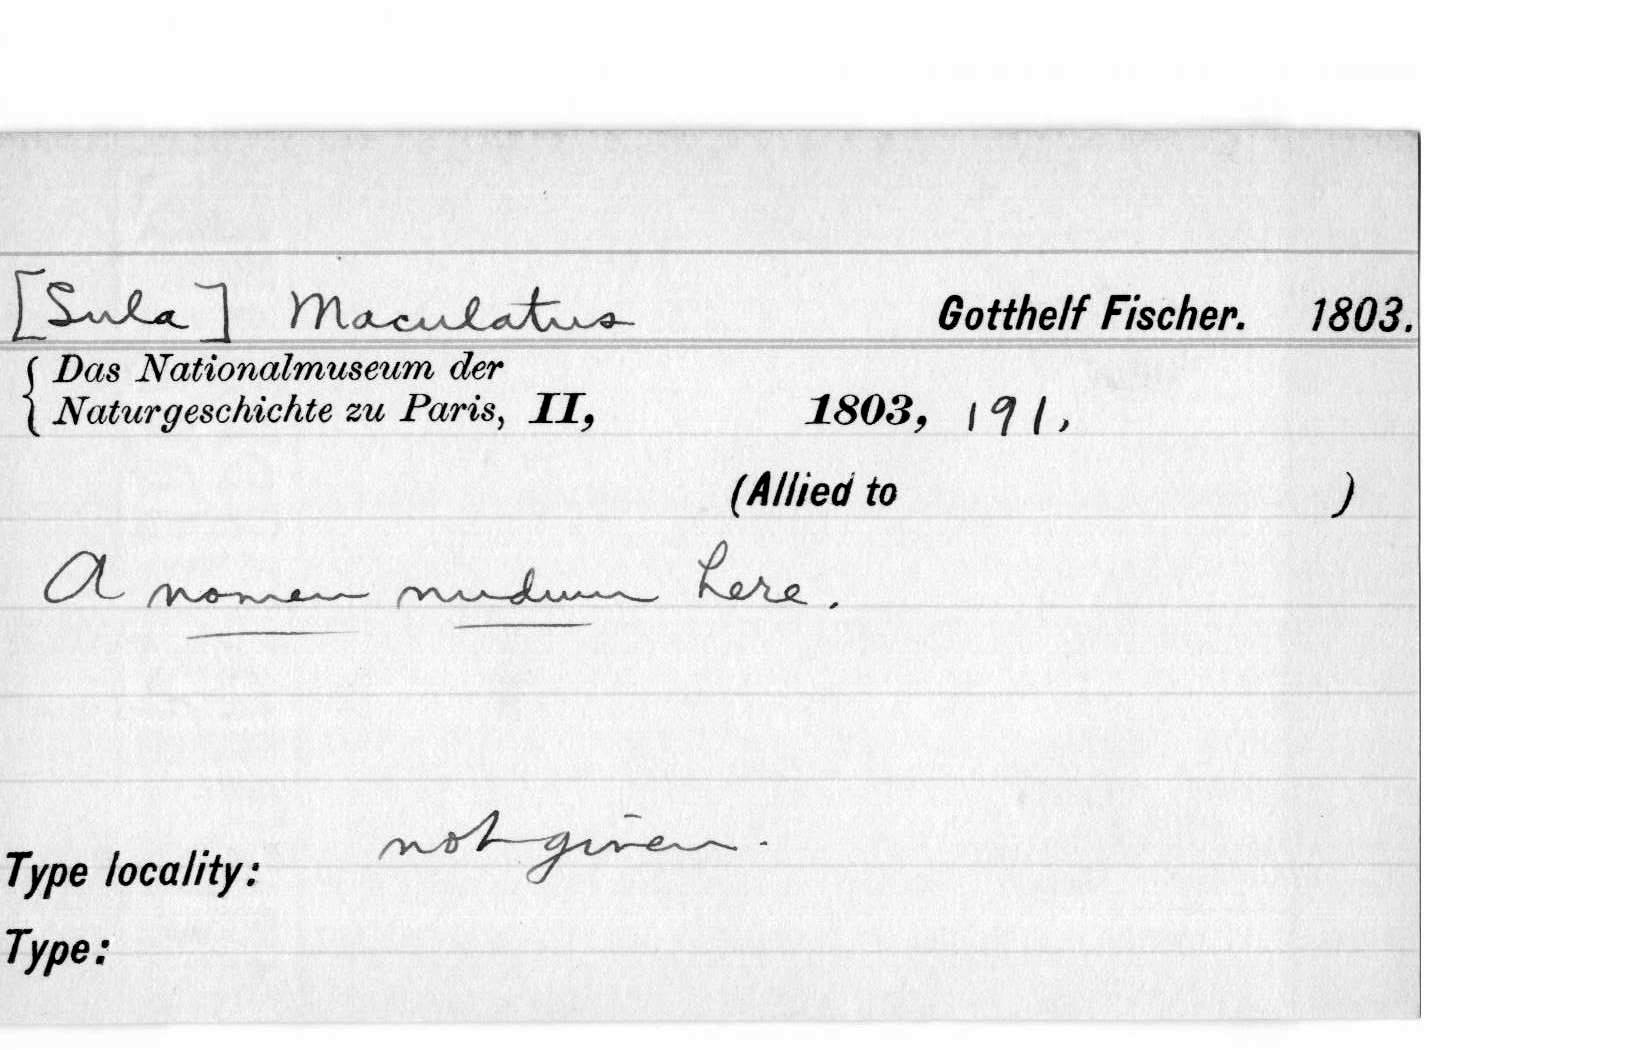 [Sula] Maculatus Gotthelf Fischer. 1803.
Das Nationalmuseum der
Naturgeschichte zu Paris, II, 1803, 191,
(Allied to )
A nomen nudum here.
Type locality: not given.
Type: